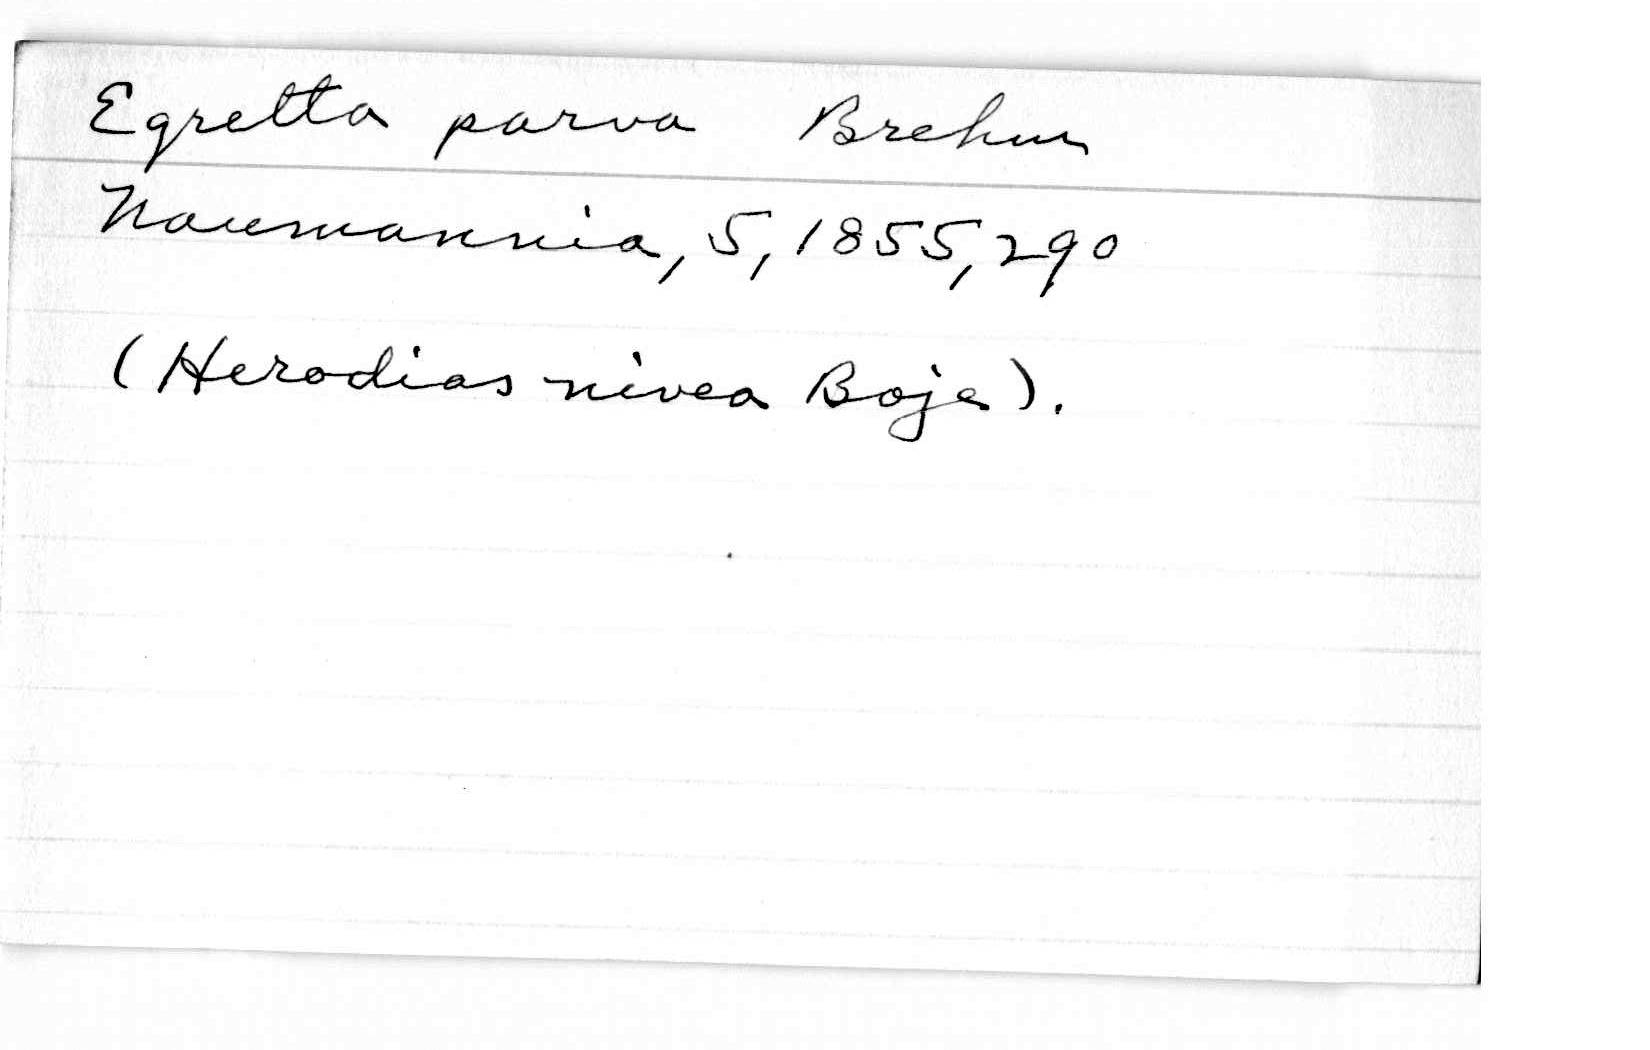 Egretta parva Brehm
Naumannia, 5, 1855, 290
(Herodias nivea Boje).